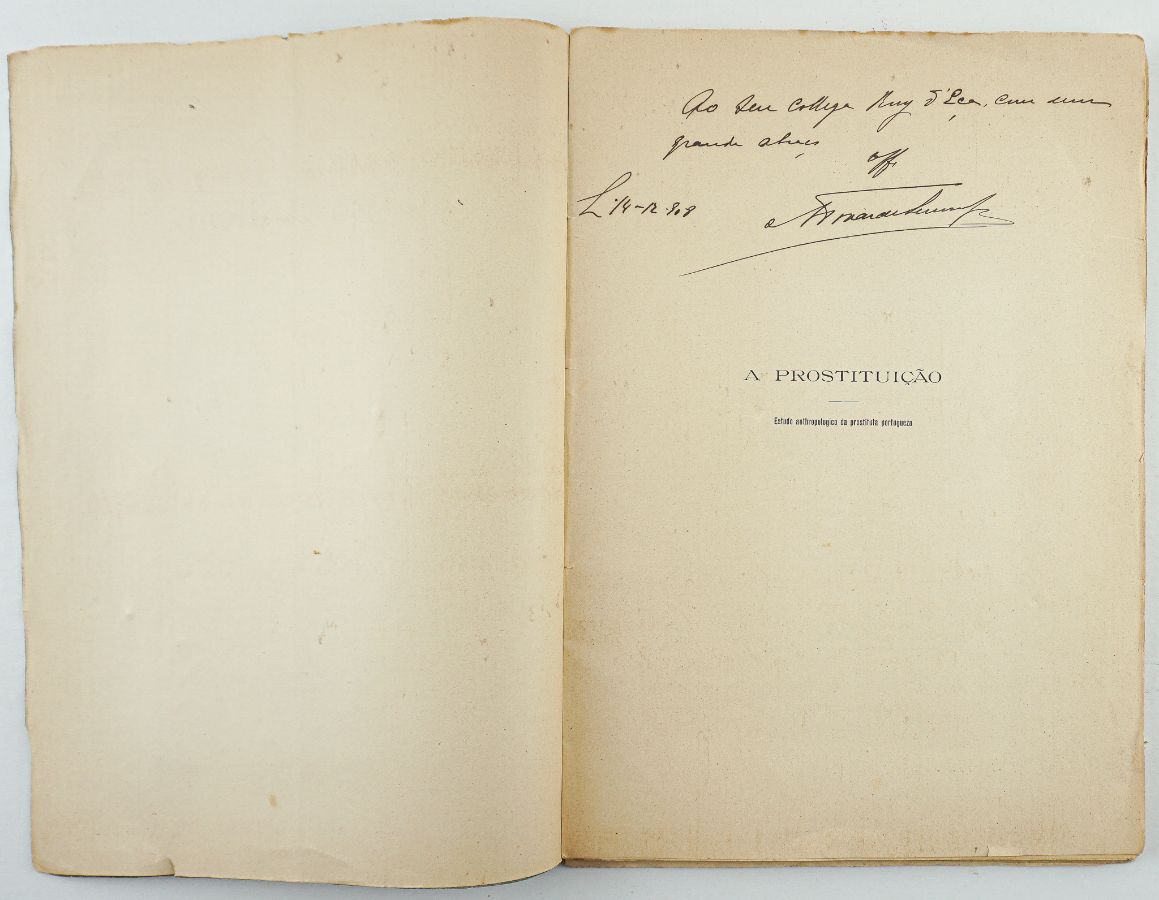 Ao seu collega Ruy d'Eça, com um
grande abraço
off.
L. 14-12-908
A PROSTITUIÇÃO
Estudo anthropologico da prostituta portugueza